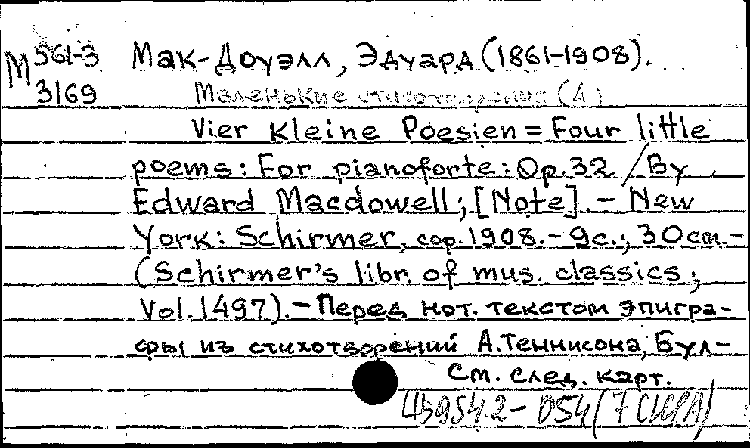 М 561-3 Мак-Доуэлл, Эдуард (1861-1908).
3169 Маленькие стихотворения (4)
Vier Kleine Poesien = Four little
poems: For pianoforte: Op. 32 / By
Edward Macdowell; [Note]. - New
York: Schirmer, cop. 1908. - 9с.; 30см. -
(Schirmer's libr. of mus. classics;
Vol. 1497). - Перед нот. текстом эпигра-
фы из стихотворений А. Теннисона, Бул-
См. след. карт.